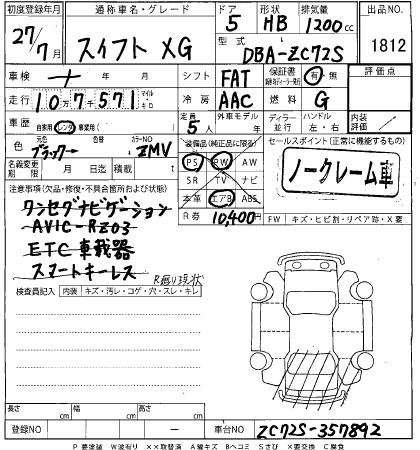 初度登録年月 通称車名・グレード ドア 形状 排気量 出品NO
27/7月 スイフト XG 5 HB 1200cc 1812
型式 DBA-ZC72S
車検 年 月 シフト FAT 保証書 有・無 評価点
走行 10万7千571 マイル キロ 冷房 AAC 燃料 G
車歴 自家用 レンタ 事業用( ) 定員 5人 外車モデル 年 ディーラー 並行 ハンドル 左・右 内装評価
色 元色 ブラック 色替 カラーNO ZMV 装備品(純正品に限る) セールスポイント(正常に機能するもの)
名義変更期限 月 日 積載 t PS PW AW ノークレーム車
注意事項(欠品・修復・不具合箇所および状態) SR TV ナビ
ワンセグナビゲーション 本革 エアB ABS
AVIC-RZ03 R券 10,400円 FW キズ・ヒビ割・リペア跡・X要
ETC車載器
スマートキーレス R廻り現状
検査員記入 内装 キズ・汚レ・コゲ・穴・スレ・キレ
長さ cm 幅 cm 高さ cm
登録NO 車台NO ZC72S-357892
P要塗装 W波有り XX取替済 A線キズ Bヘコミ Sさび X要交換 C腐食